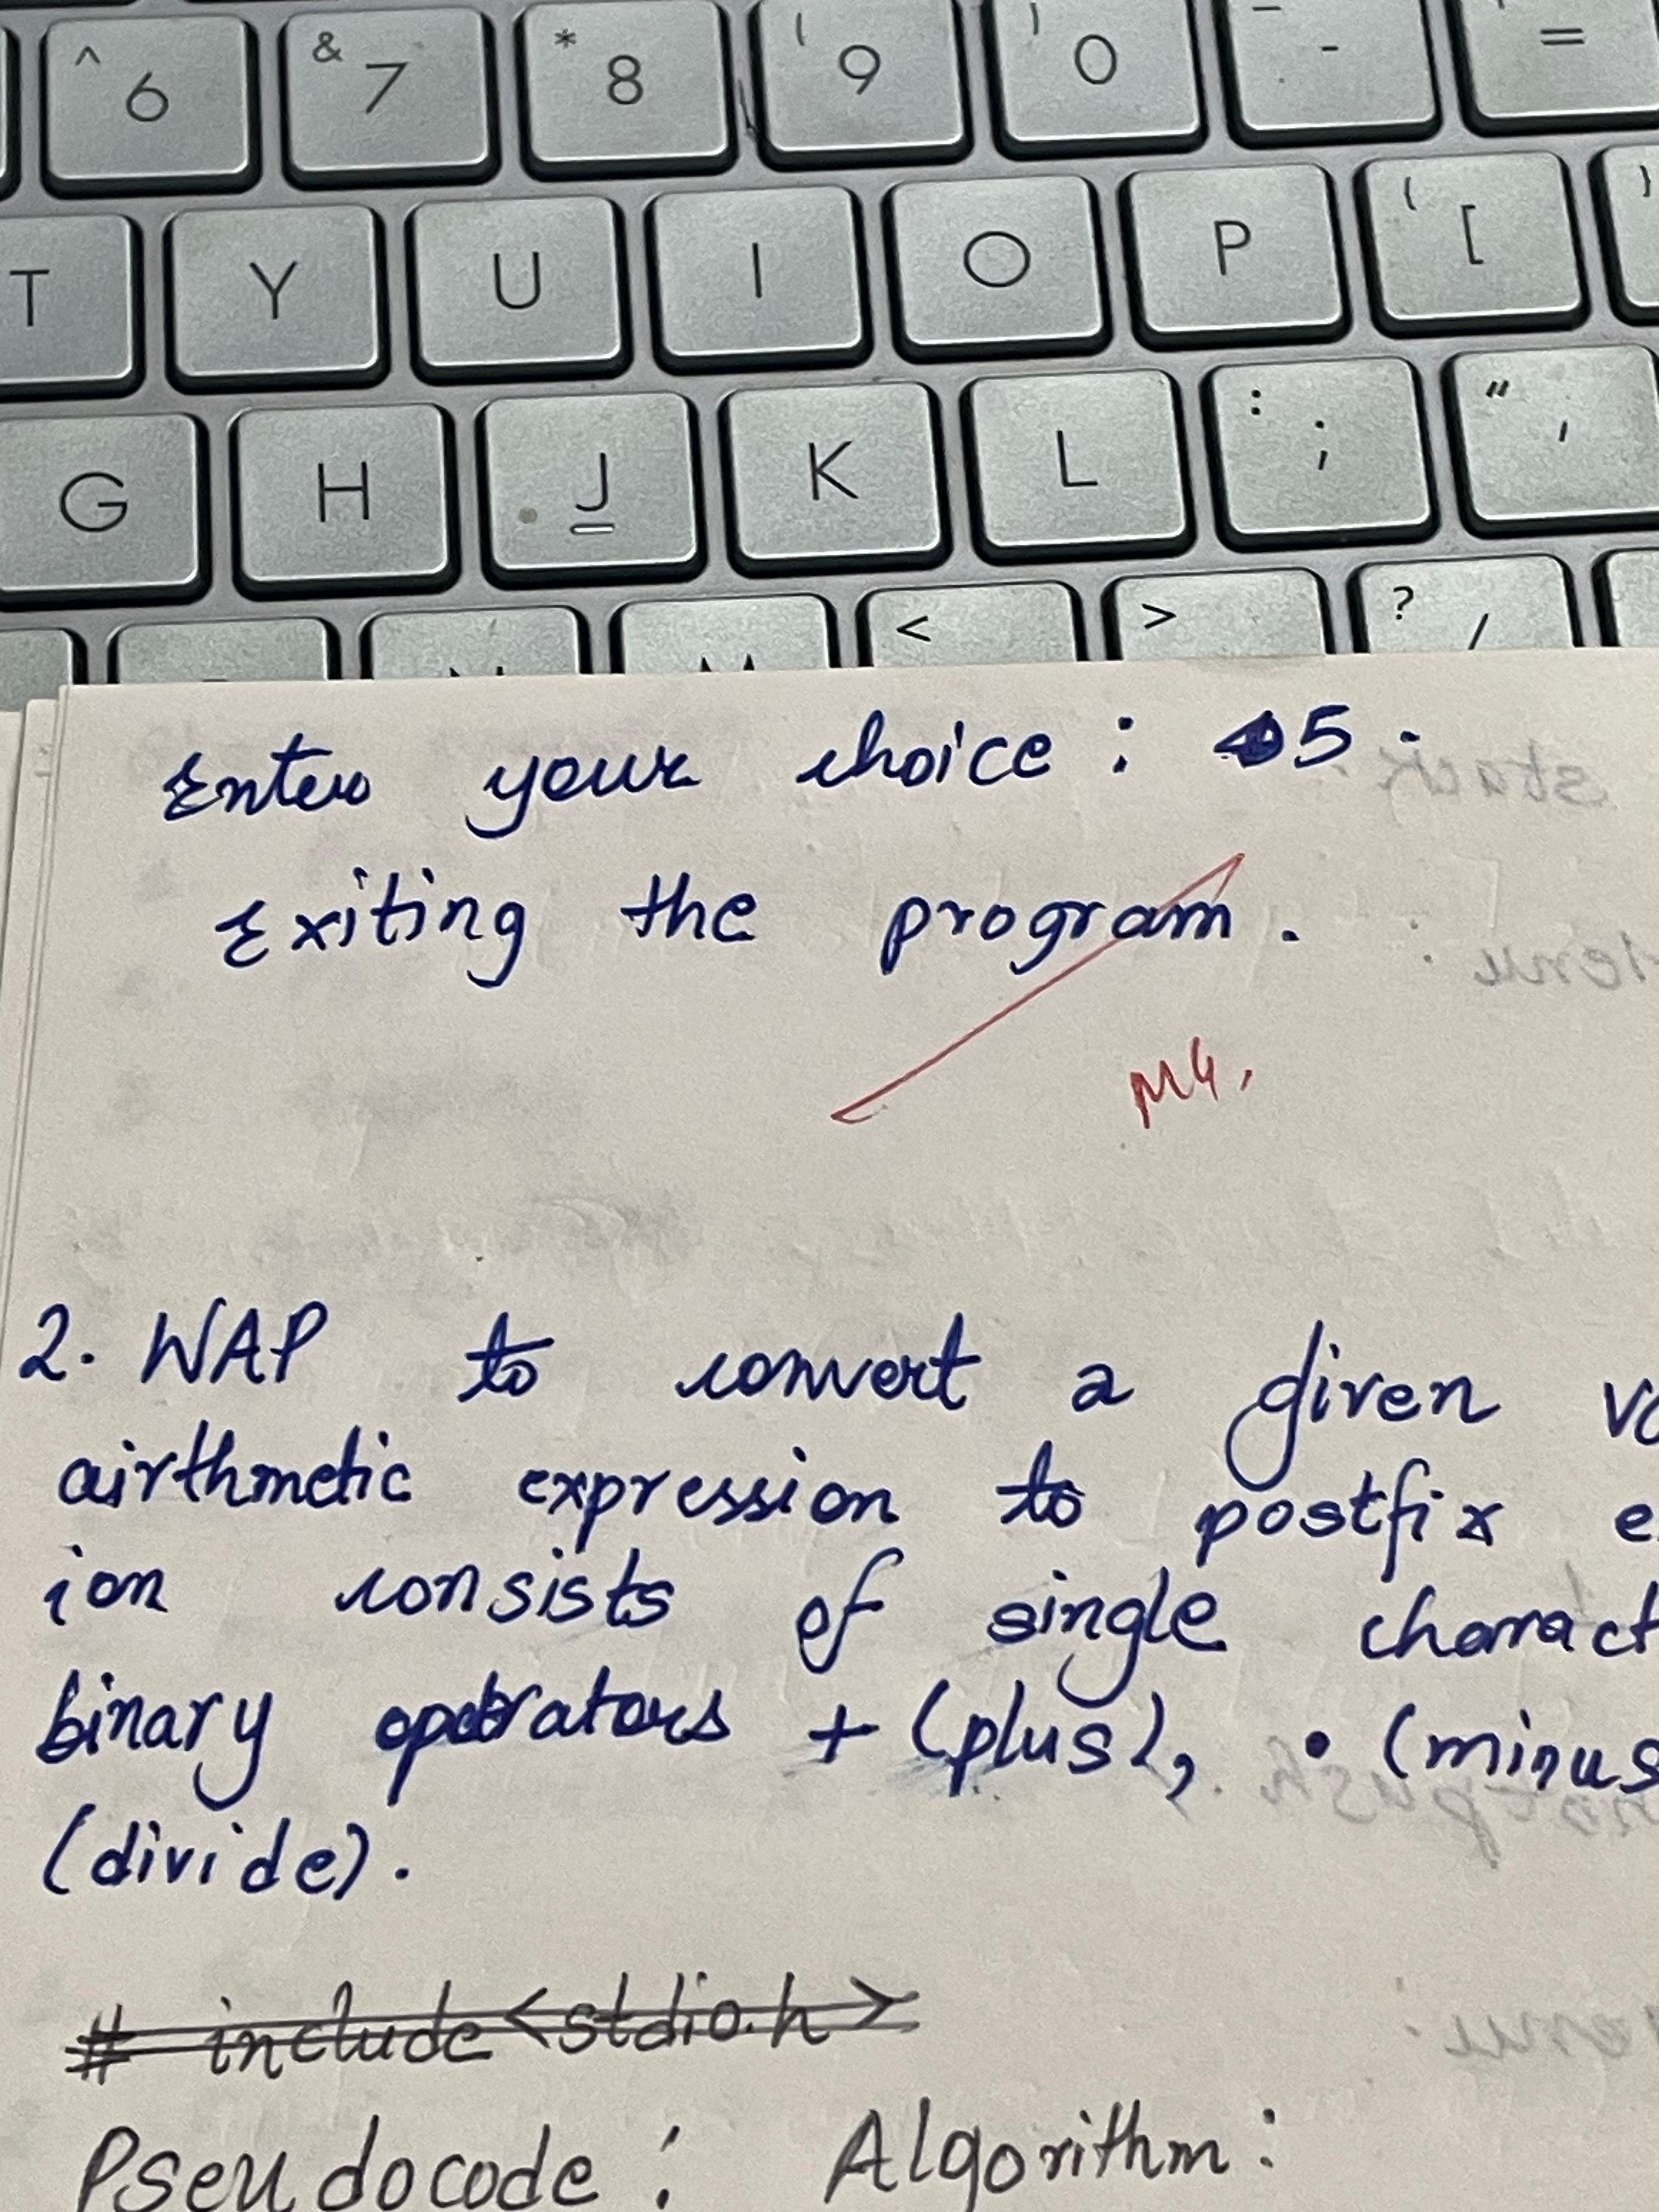 ^ 6 & 7 * 8 ( 9 ) 0 - =
T Y U I O P [
G H J K L : ; " '
< > ? /
Enter your choice : 5.
Exiting the program.
2. WAP to convert a given
airthmetic expression to postfix
ion consists of single charact
binary operators + (plus), • (minus
(divide).
# include <stdio.h>
Pseudocode : Algorithm :